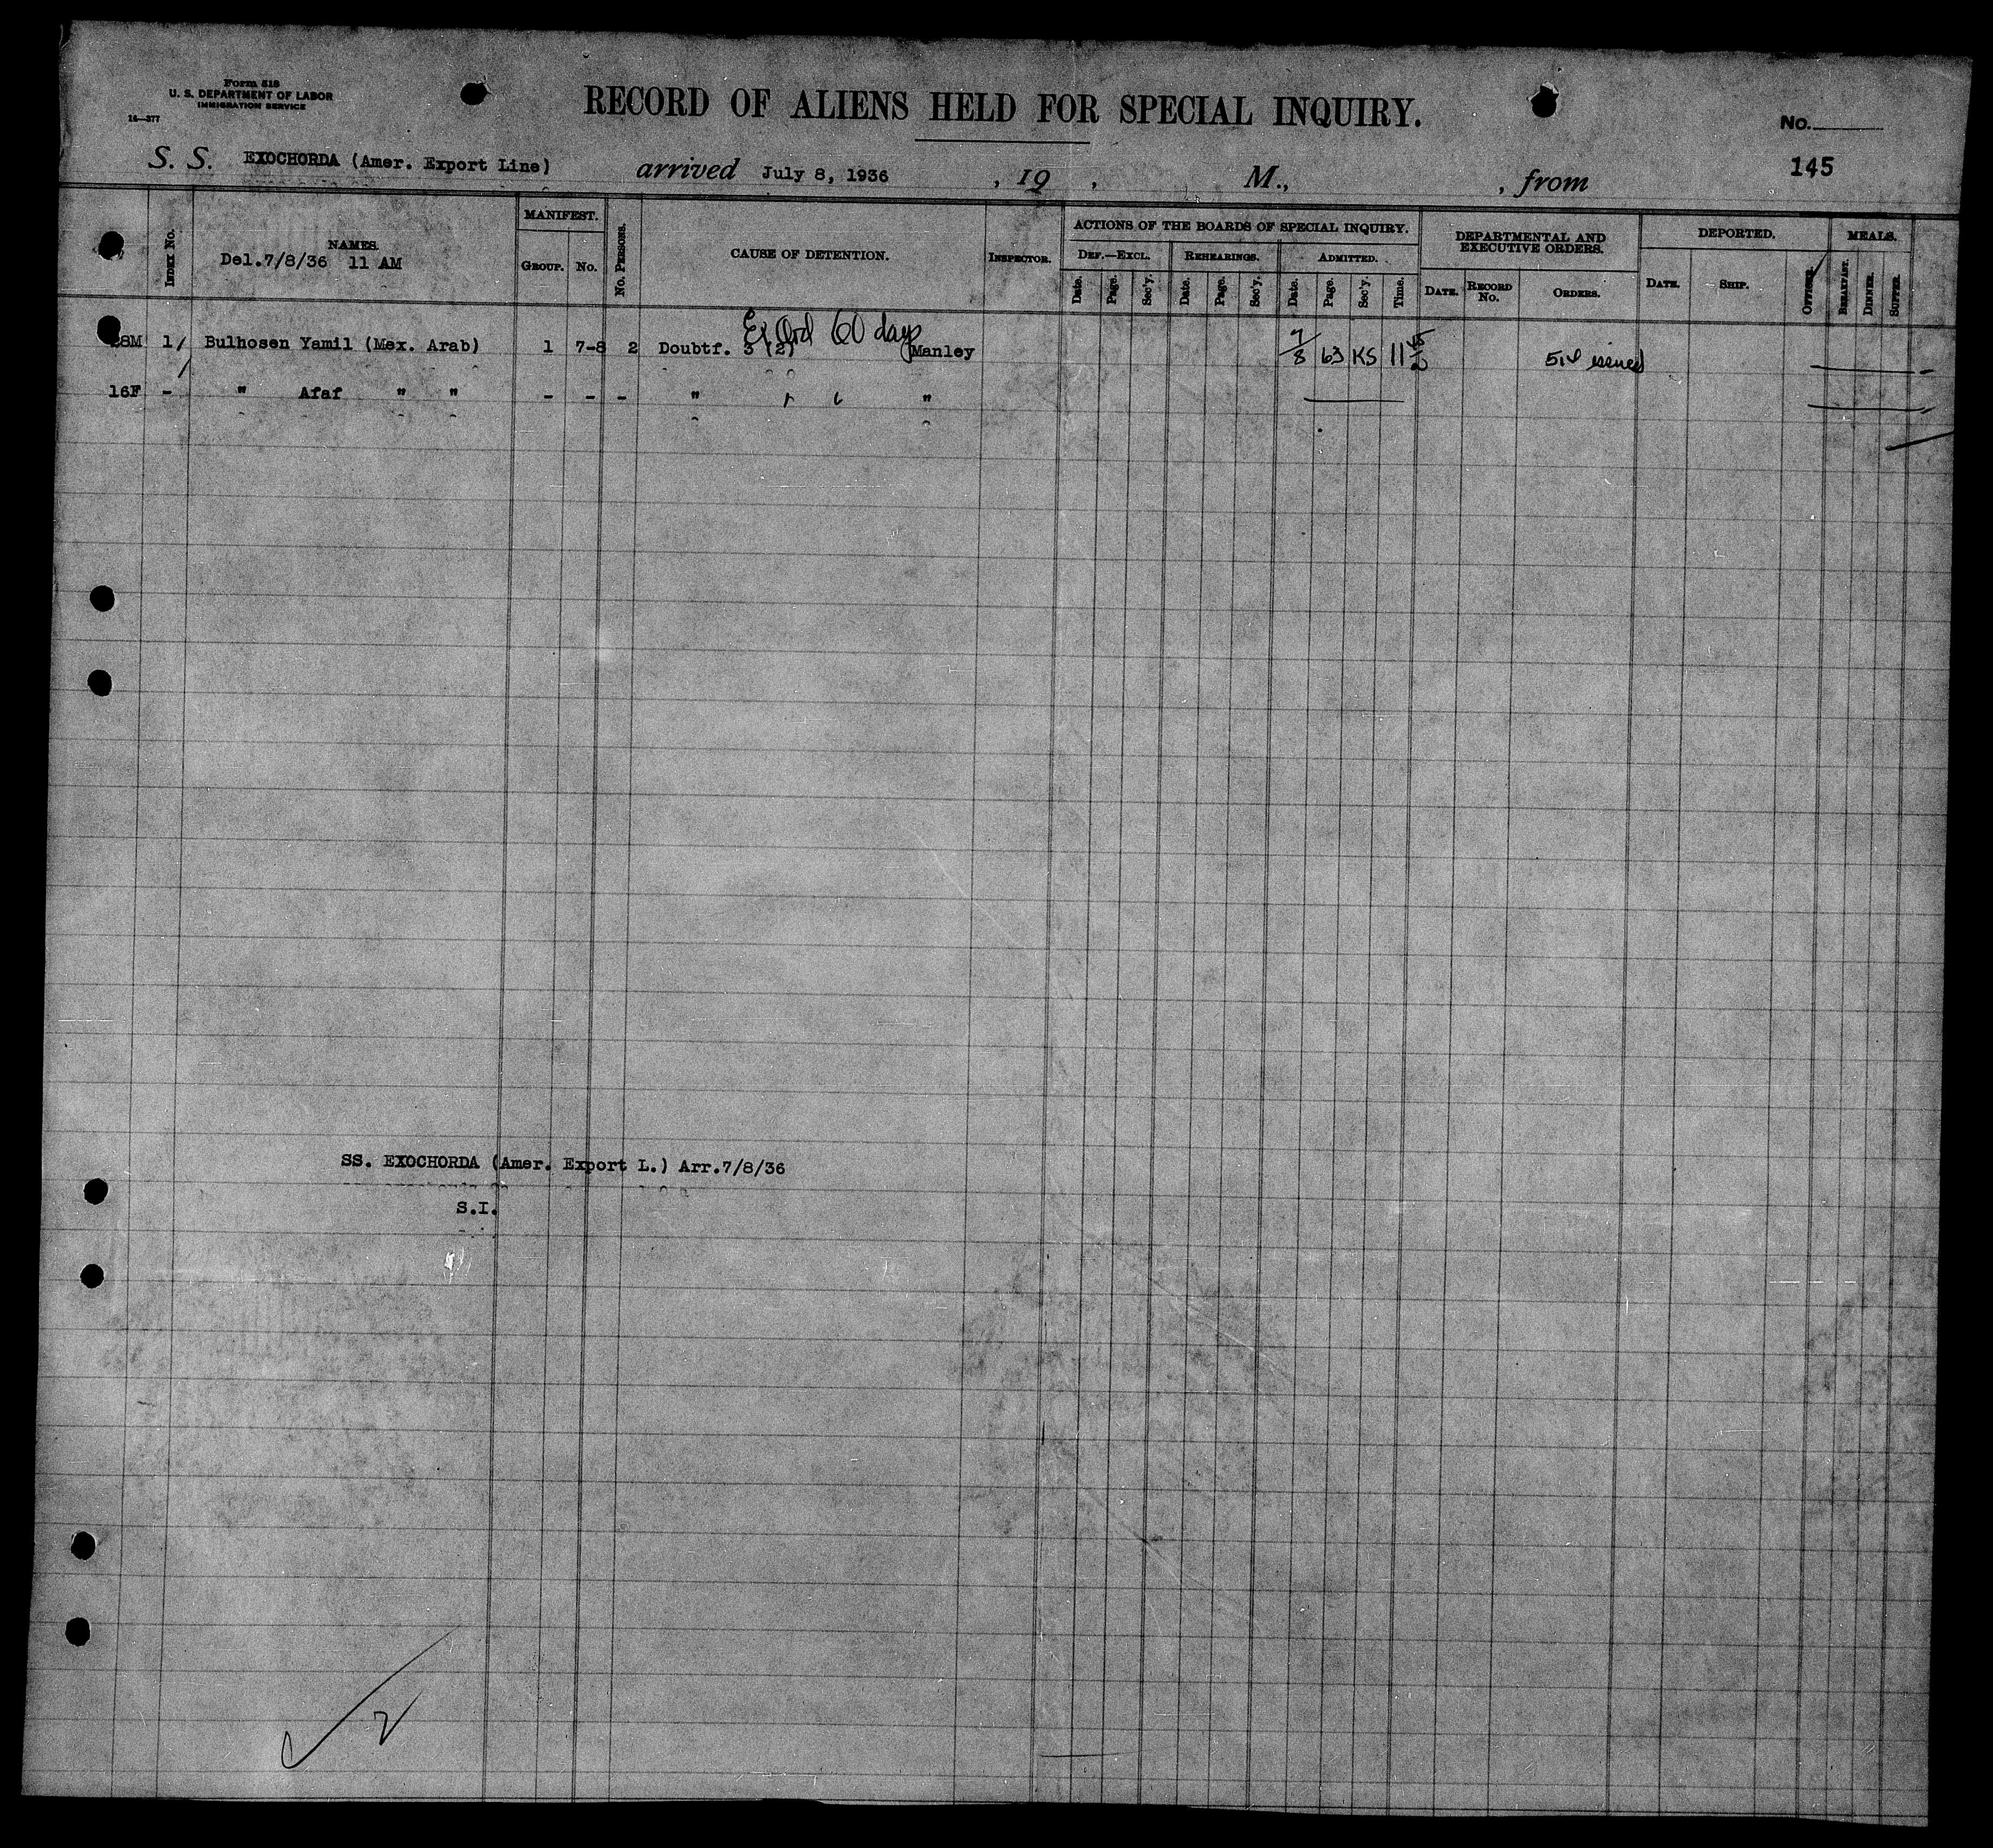 Form 518
U. S. DEPARTMENT OF LABOR
IMMIGRATION SERVICE
14—377
RECORD OF ALIENS HELD FOR SPECIAL INQUIRY.
No.
145
S. S. EXOCHORDA (Amer. Export Line) arrived July 8, 1936 , 19 , M., , from
INDEX No. NAMES. MANIFEST. No. PERSONS. CAUSE OF DETENTION. INSPECTOR. ACTIONS OF THE BOARDS OF SPECIAL INQUIRY. DEPARTMENTAL AND EXECUTIVE ORDERS. DEPORTED. MEALS.
Del.7/8/36 11 AM
GROUP. No. DEF.—EXCL. REHEARINGS. ADMITTED. DATE. RECORD No. ORDERS. DATE. SHIP. OFFICER. BREAKFAST. DINNER. SUPPER.
Date. Page. Sec'y. Date. Page. Sec'y. Date. Page. Sec'y. Time.
Ex Ord 60 days
8M 1/ Bulhosen Yamil (Mex. Arab) 1 7-8 2 Doubtf. 3 (2) Manley 7/8 63 KS 11 issued
16F - " Afaf " " - - - " " " "
SS. EXOCHORDA (Amer. Export L.) Arr.7/8/36
S.I.
2